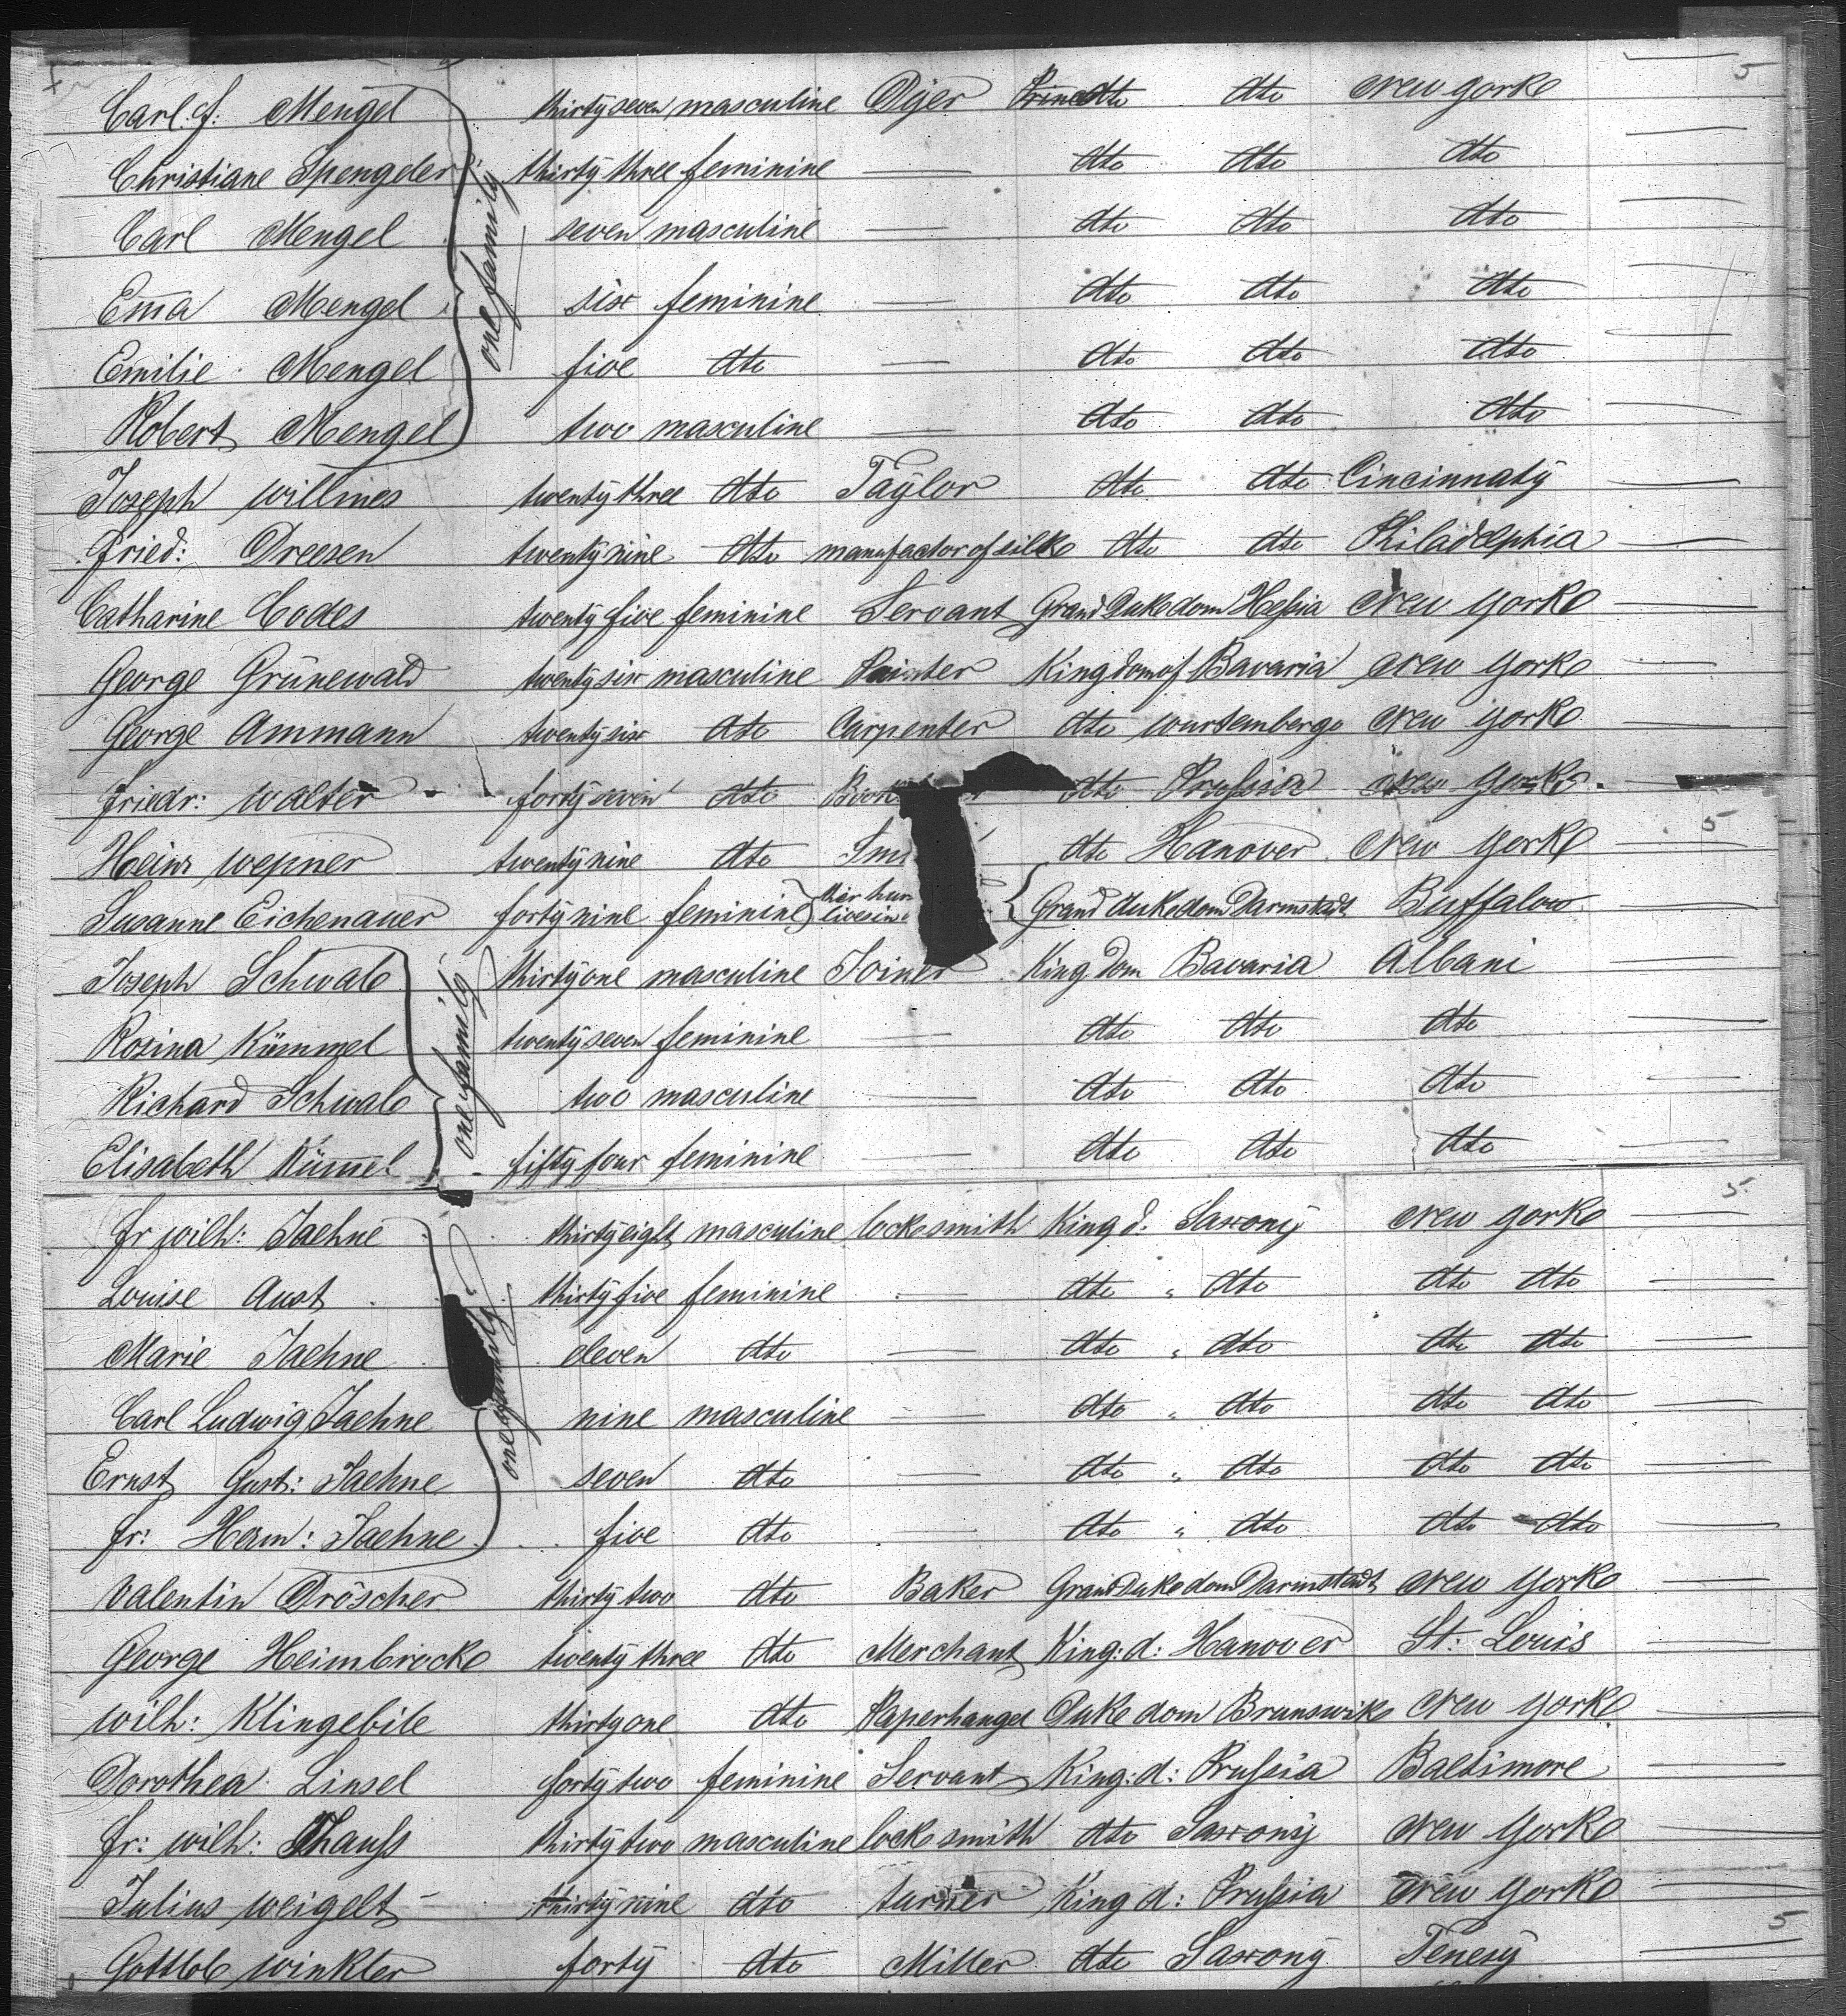 5
Carl. f: Mengel thirty seven masculine Dÿer dto dto New Yorke
Christiane Spengeler thirty three feminine — dto dto dto
Carl Mengel seven masculine — dto dto dto
Em̄a Mengel six feminine — dto dto dto
Emilie Mengel five dto — dto dto dto
Robert Mengel two masculine — dto dto dto
one family
Joseph Willmes twentÿ three dto Taÿlor dto dto Cincinnatÿ
fried: Dreesen twentÿ nine dto manufactor of silk dto dto Philadelphia
Catharine Codes twentÿ five feminine Servant Grand Dukedom Heſsia New Yorke
George Grünewald twentÿ six masculine Painter Kingdom of Bavaria New Yorke
George Ammann twentÿ six dto Carpenter dto Wurtemberge New Yorke
friedr: Walter fortÿ seven dto dto Pruſsia New Yorke
Heinr Wepner twentÿ nine dto dto Hanover New Yorke
5
Susanne Eichenauer fortÿ nine feminine Grand dukedom Darmstadt Buffalow
Joseph Schwab thirtÿ one masculine Joiner Kingdom Bavaria Albani
Rosina Kümmel twentÿ seven feminine — dto dto dto
Richard Schwab two masculine — dto dto dto
Elisabeth Küm̄el fiftÿ four feminine — dto dto dto
one family
5
fr wilh: Jaehne thirtÿ eight masculine locksmith King d: Saxonÿ New Yorke
Louise Aust thirtÿ five feminine — dto " dto dto dto
Marie Jaehne eleven dto — dto " dto dto dto
Carl Ludwig Jaehne nine masculine — dto " dto dto dto
Ernst Gust: Jaehne seven dto — dto " dto dto dto
fr: Herm: Jaehne five dto dto " dto dto dto
one family
Valentin Dröscher thirtÿ two dto Baker Grand Dukedom Darmstadt New Yorke
George Heimbrocke twentÿ three dto Merchant King: d: Hanover St: Louis
Wilh: Klingebile thirtÿ one dto Paperhangel Duke dom Brunswike New Yorke
Dorothea Linsel fortÿ two feminine Servant King: d: Pruſsia Baltimore
fr: wilh: Thauſs thirtÿ two masculine locksmith dto Saxonÿ New Yorke
Julius Weigelt thirtÿ nine dto turner King d: Pruſsia New Yorke
5
Gottlob Winkler fortÿ dto Miller dto Saxonÿ Tenesÿ